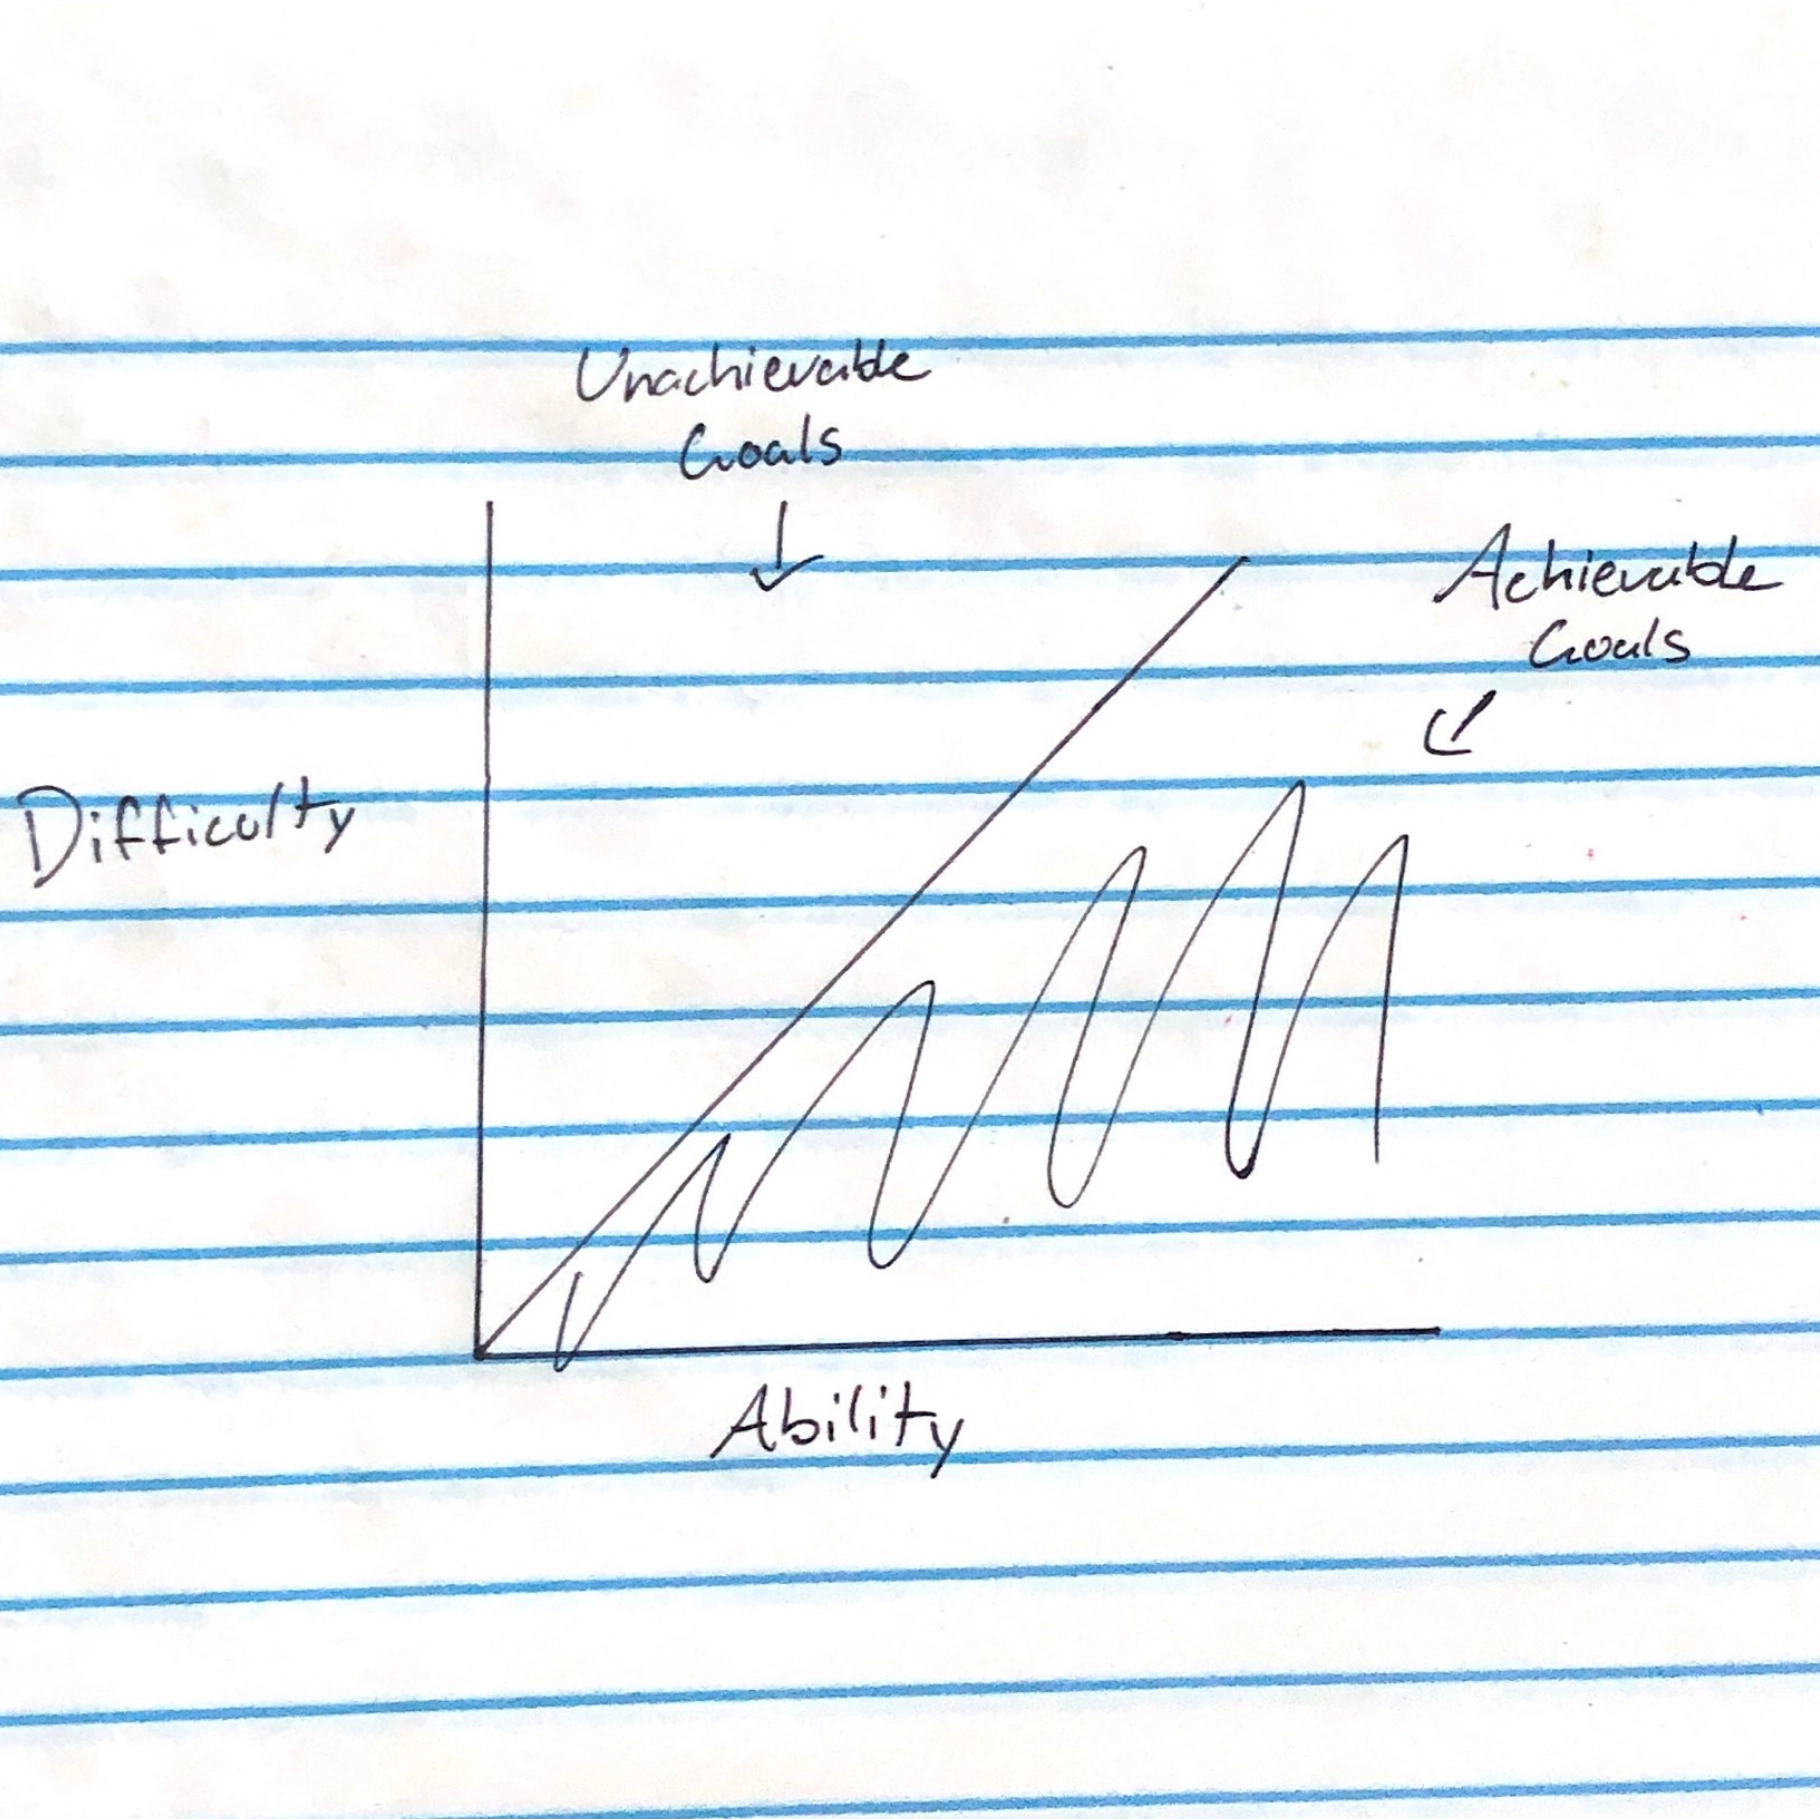 Unachievable
Goals
Achievable
Goals
Difficulty
Ability